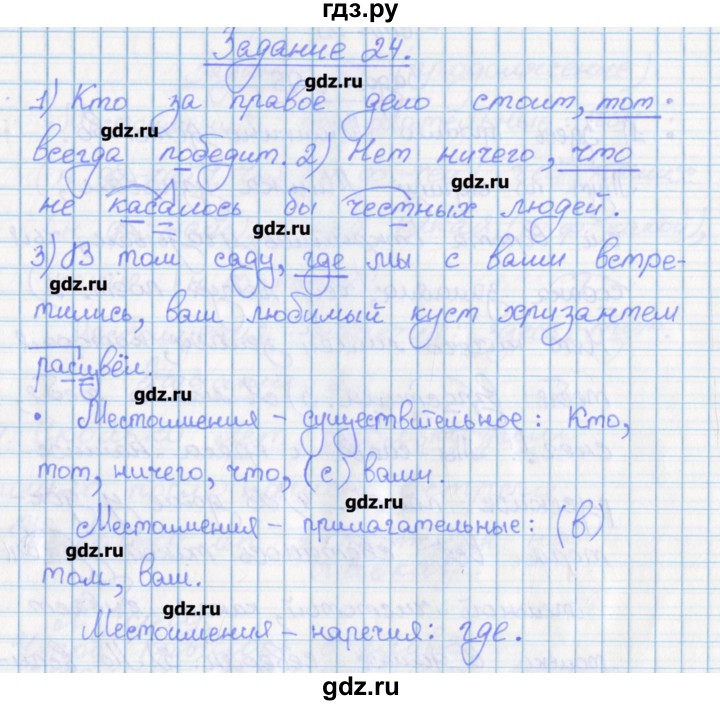 гдз.ру
Задание 24.
gdz.ru
1) Кто за правое дело стоит, тот
gdz.ru
всегда победит. 2) Нет ничего, что
gdz.ru
не касалось бы честных людей.
gdz.ru
3) В том саду, где мы с вами встре-
gdz.ru
тились, ваш любимый куст хризантем
расцвёл.
gdz.ru
• Местоимения - существительное: Кто,
тот, ничего, что, (с) вами.
gdz.ru
Местоимения - прилагательные: (в)
gdz.ru
том, ваш.
gdz.ru
Местоимения - наречия: где.
gdz.ru